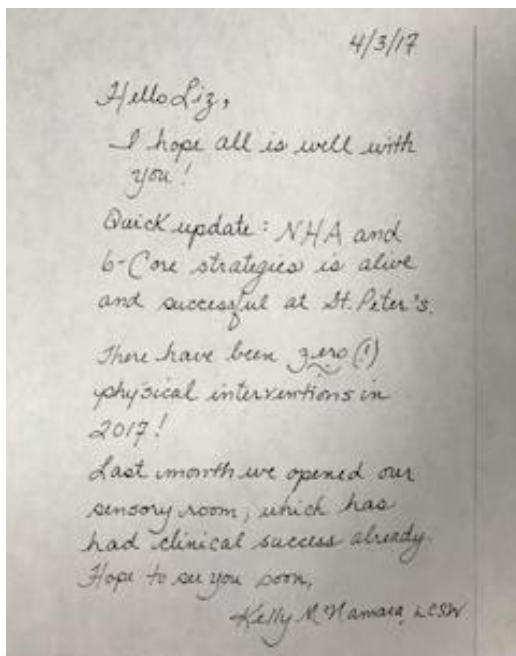 4/3/17
Hello Liz,
I hope all is well with
you!
Quick update: NHA and
6-Core strategies is alive
and successful at St. Peter's.
There have been zero (!)
physical interventions in
2017!
Last month we opened our
sensory room, which has
had clinical success already.
Hope to see you soon,
Kelly McNamara, LCSW